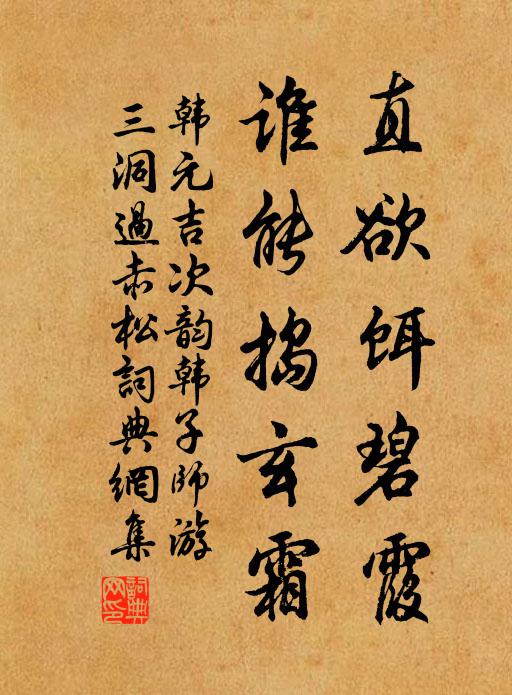 直欲餌碧霞
谁能搗玄霜
韩元吉次韵韩子师游
三洞過赤松詞典網集
詞典網印